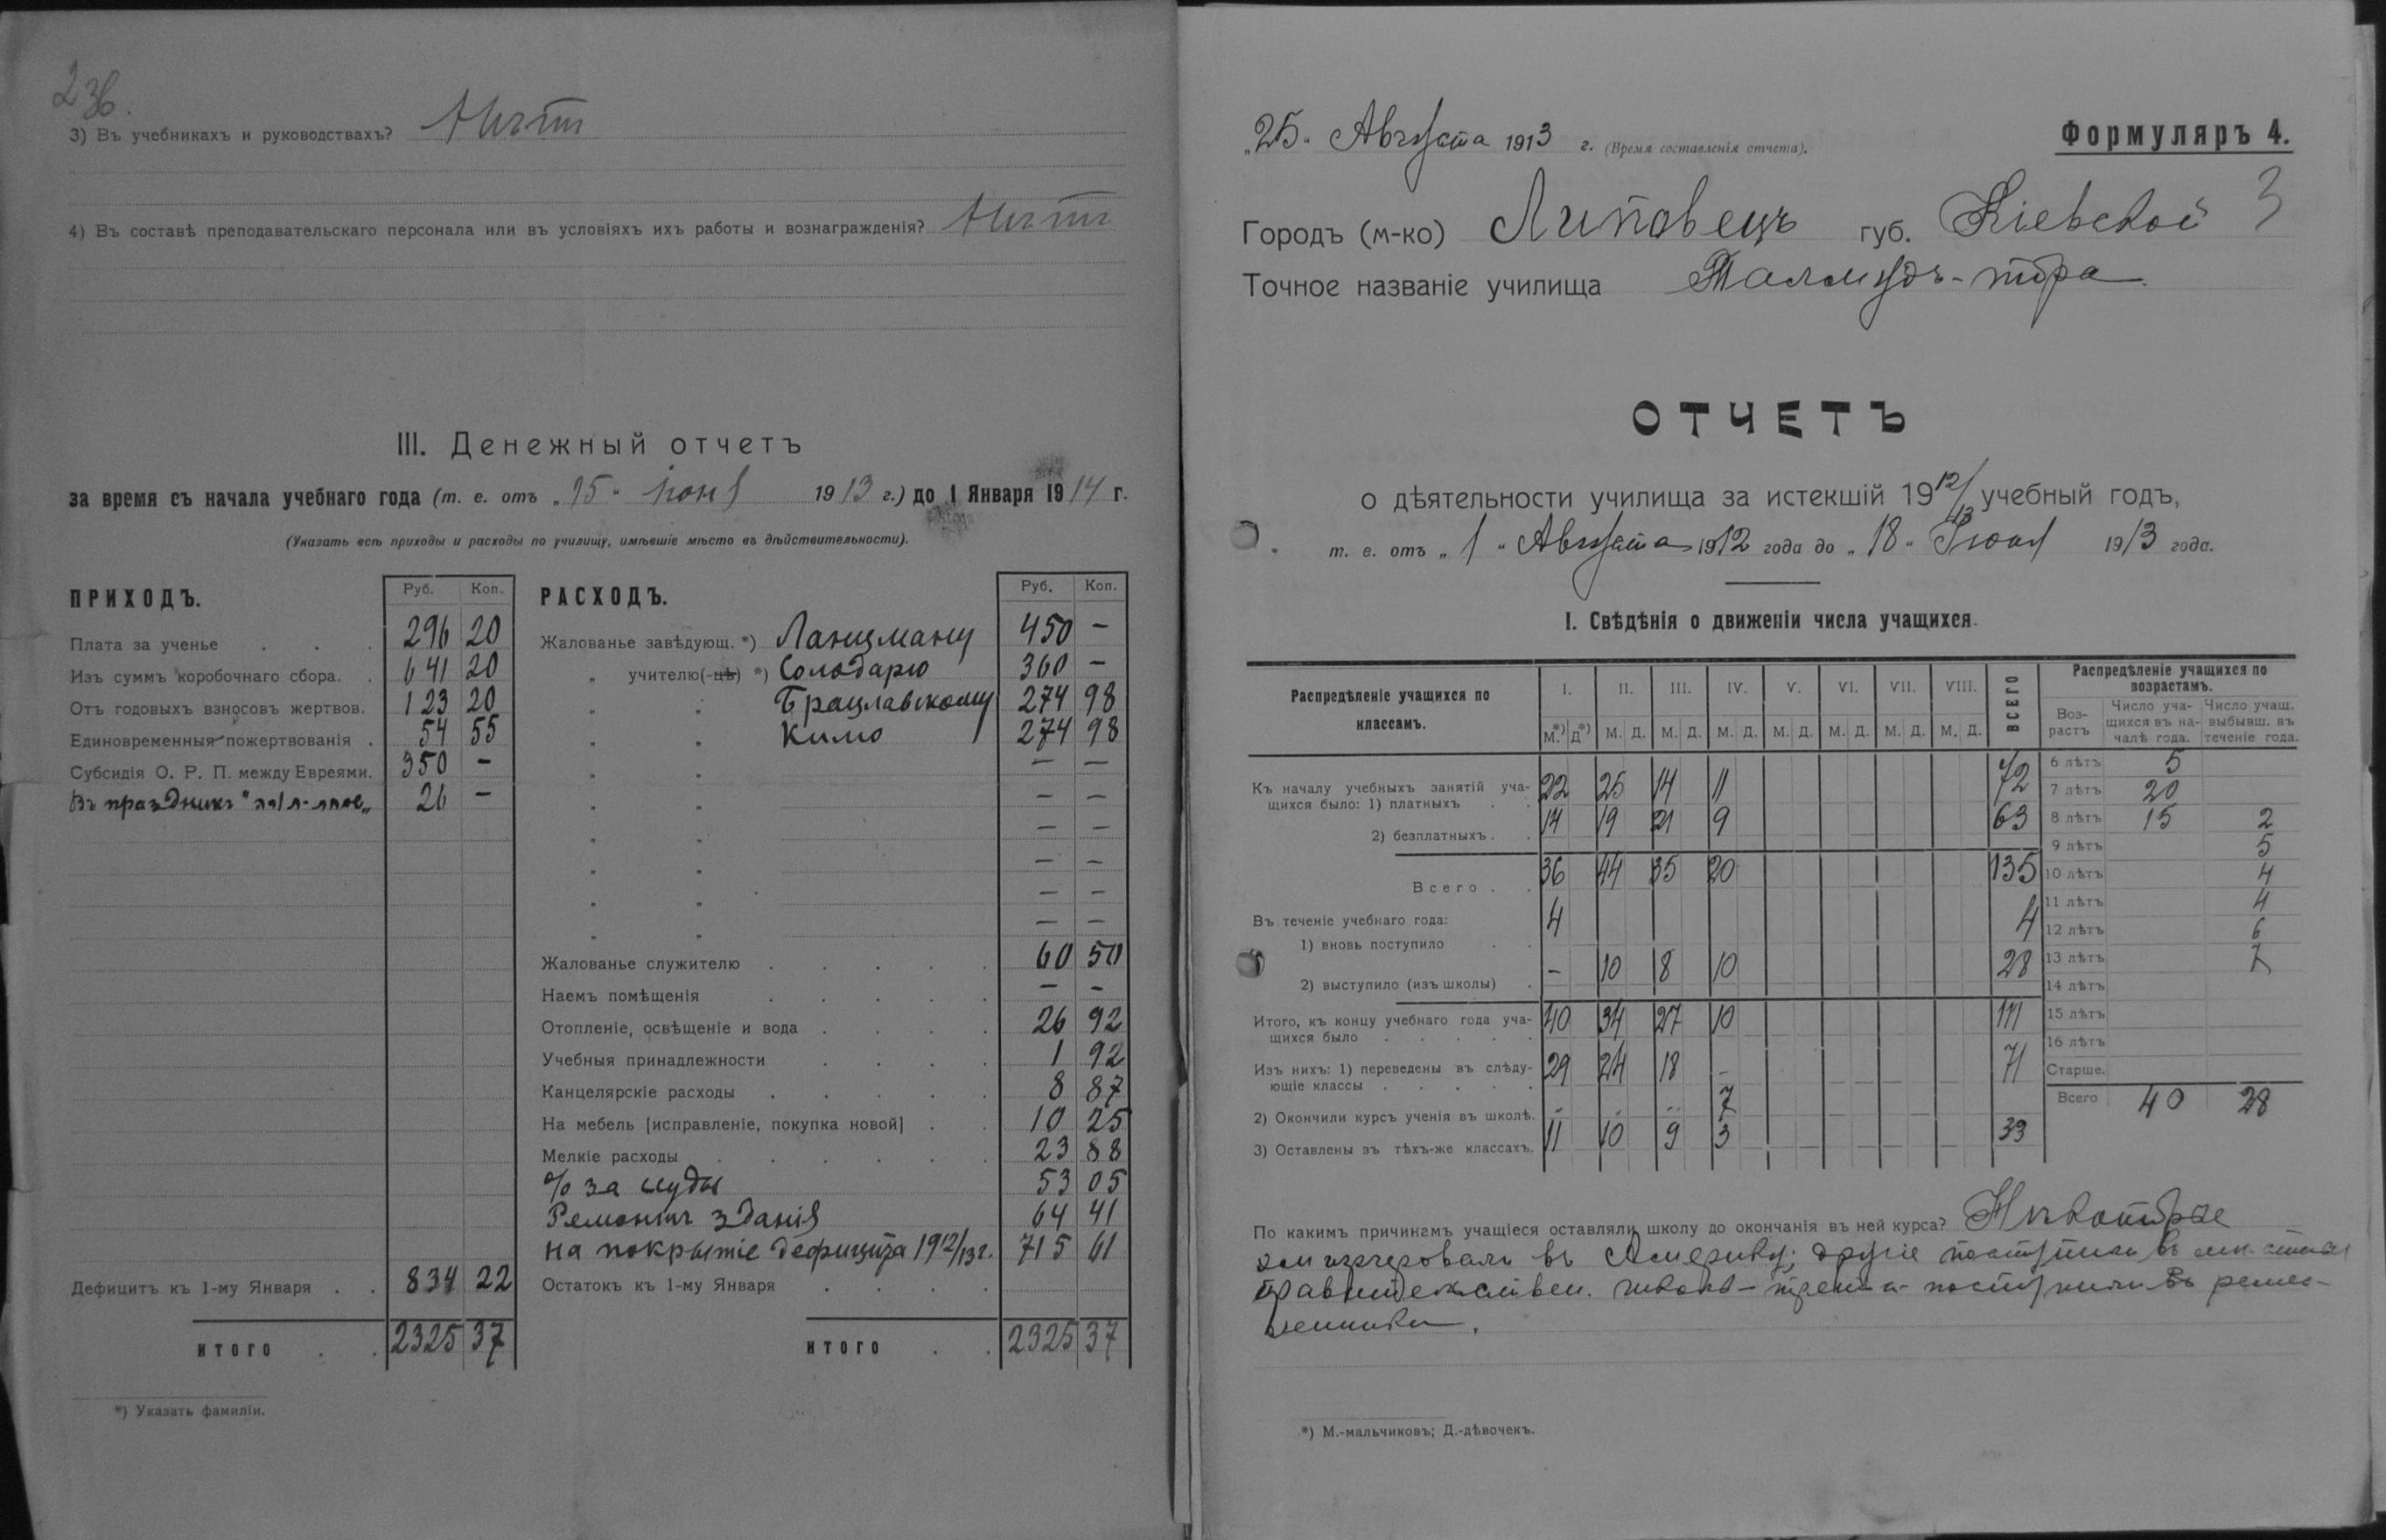 236.
3) Въ учебникахъ и руководствахъ? Нѣтъ
4) Въ составѣ преподавательскаго персонала или въ условіяхъ ихъ работы и вознагражденія? Нѣтъ
III. Денежный отчетъ
за время съ начала учебнаго года (т. е. отъ „15" 1913 г.) до 1 Января 1914 г.
(Указать всѣ приходы и расходы по училищу, имѣвшіе мѣсто въ дѣйствительности).
ПРИХОДЪ. Руб. Коп.
Плата за ученье . . . 296 20
Изъ суммъ коробочнаго сбора. . 641 20
Отъ годовыхъ взносовъ жертвов. 123 20
Единовременныя пожертвованія . 54 55
Субсидія О. Р. П. между Евреями. 350 -
Въ праздникъ 26 -
Дефицитъ къ 1-му Января . . 834 22
ИТОГО . . 2325 37
*) Указать фамиліи.
РАСХОДЪ. Руб. Коп.
Жалованье завѣдующ. *) Ланцману 450 -
„ учителю(-цѣ) *) Солодарю 360 -
„ „ Брацлавскому 274 98
„ „ 274 98
„ „ — —
„ „ — —
„ „ — —
„ „ — —
„ „ — —
„ „ — —
Жалованье служителю . . . . . 60 50
Наемъ помѣщенія . . . . . — -
Отопленіе, освѣщеніе и вода . . . . 26 92
Учебныя принадлежности . . . . 1 92
Канцелярскіе расходы . . . . . 8 87
На мебель [исправленіе, покупка новой] . . 10 25
Мелкіе расходы . . . . . . 23 88
% за ссуды 53 05
Ремонтъ зданія 64 41
на покрытіе дефицита 1912/13 г. 715 61
Остатокъ къ 1-му Января . . . .
ИТОГО . . 2325 37
„25" Августа 1913 г. (Время составленія отчета).
Формуляръ 4.
3
Городъ (м-ко) Липовецъ губ. Кіевской
Точное названіе училища Талмудъ-тора
ОТЧЕТЪ
о дѣятельности училища за истекшій 1912/13 учебный годъ,
т. е. отъ „1" Августа 1912 года до „18" 1913 года.
I. Свѣдѣнія о движеніи числа учащихся.
Распредѣленіе учащихся по классамъ. I. II. III. IV. V. VI. VII. VIII. ВСЕГО
М.*) Д*) М. Д. М. Д. М. Д. М. Д. М. Д. М. Д. М. Д.
Къ началу учебныхъ занятій уча-
щихся было: 1) платныхъ . . 22 25 14 11 72
2) безплатныхъ . . 14 19 21 9 63
Всего . . 36 44 35 20 135
Въ теченіе учебнаго года:
1) вновь поступило . . 4 4
2) выступило (изъ школы) . - 10 8 10 28
Итого, къ концу учебнаго года уча-
щихся было . . . . . 40 34 27 10 111
Изъ нихъ: 1) переведены въ слѣду-
ющіе классы . . . . . 29 24 18 - 71
2) Окончили курсъ ученія въ школѣ. - - - 7
3) Оставлены въ тѣхъ-же классахъ. 11 10 9 3 33
Распредѣленіе учащихся по возрастамъ.
Воз-
растъ
Число уча-
щихся въ на-
чалѣ года.
Число учащ.
выбывш. въ
теченіе года.
6 лѣтъ 5
7 лѣтъ 20
8 лѣтъ 15 2
9 лѣтъ 5
10 лѣтъ 4
11 лѣтъ 4
12 лѣтъ 6
13 лѣтъ 7
14 лѣтъ
15 лѣтъ
16 лѣтъ
Старше.
Всего 40 28
По какимъ причинамъ учащіеся оставляли школу до окончанія въ ней курса? Нѣкоторые
эмигрировали въ Америку; другіе въ
поступили въ ремес-
ленники.
*) М.-мальчиковъ; Д.-дѣвочекъ.